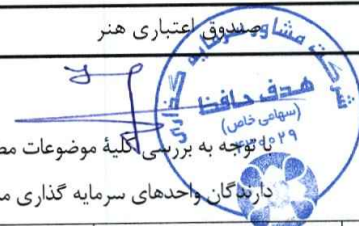 صندوق اعتباری هنر
شرکت مشاور سرمایه گذاری
هدف حافظ
(سهامی خاص)
۴۳۰۰۲۹
با توجه به بررسی کلیهٔ موضوعات
دارندگان واحدهای سرمایه گذاری